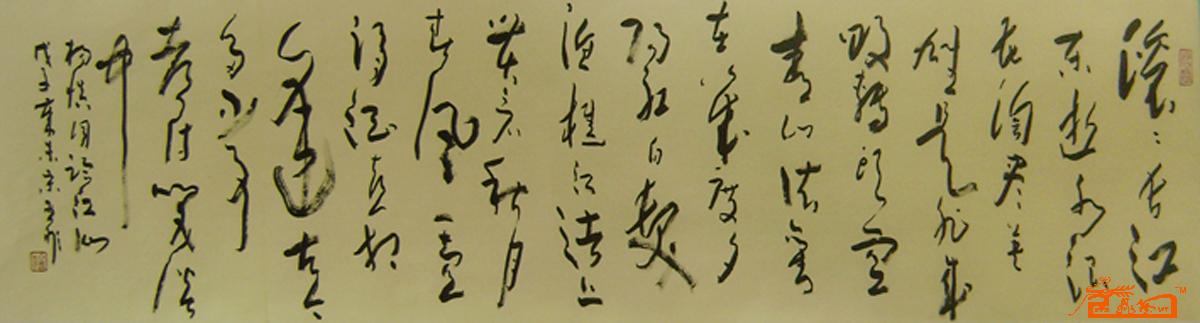 滚〻长江
东逝水浪
花淘尽英
雄是非成
败转头空
青山依旧
在几度夕
阳红白发
渔樵江渚上
惯看秋月
春风一壶
浊酒喜相
逢古今
多少事
都付笑谈
中
杨慎词临江仙
戊子